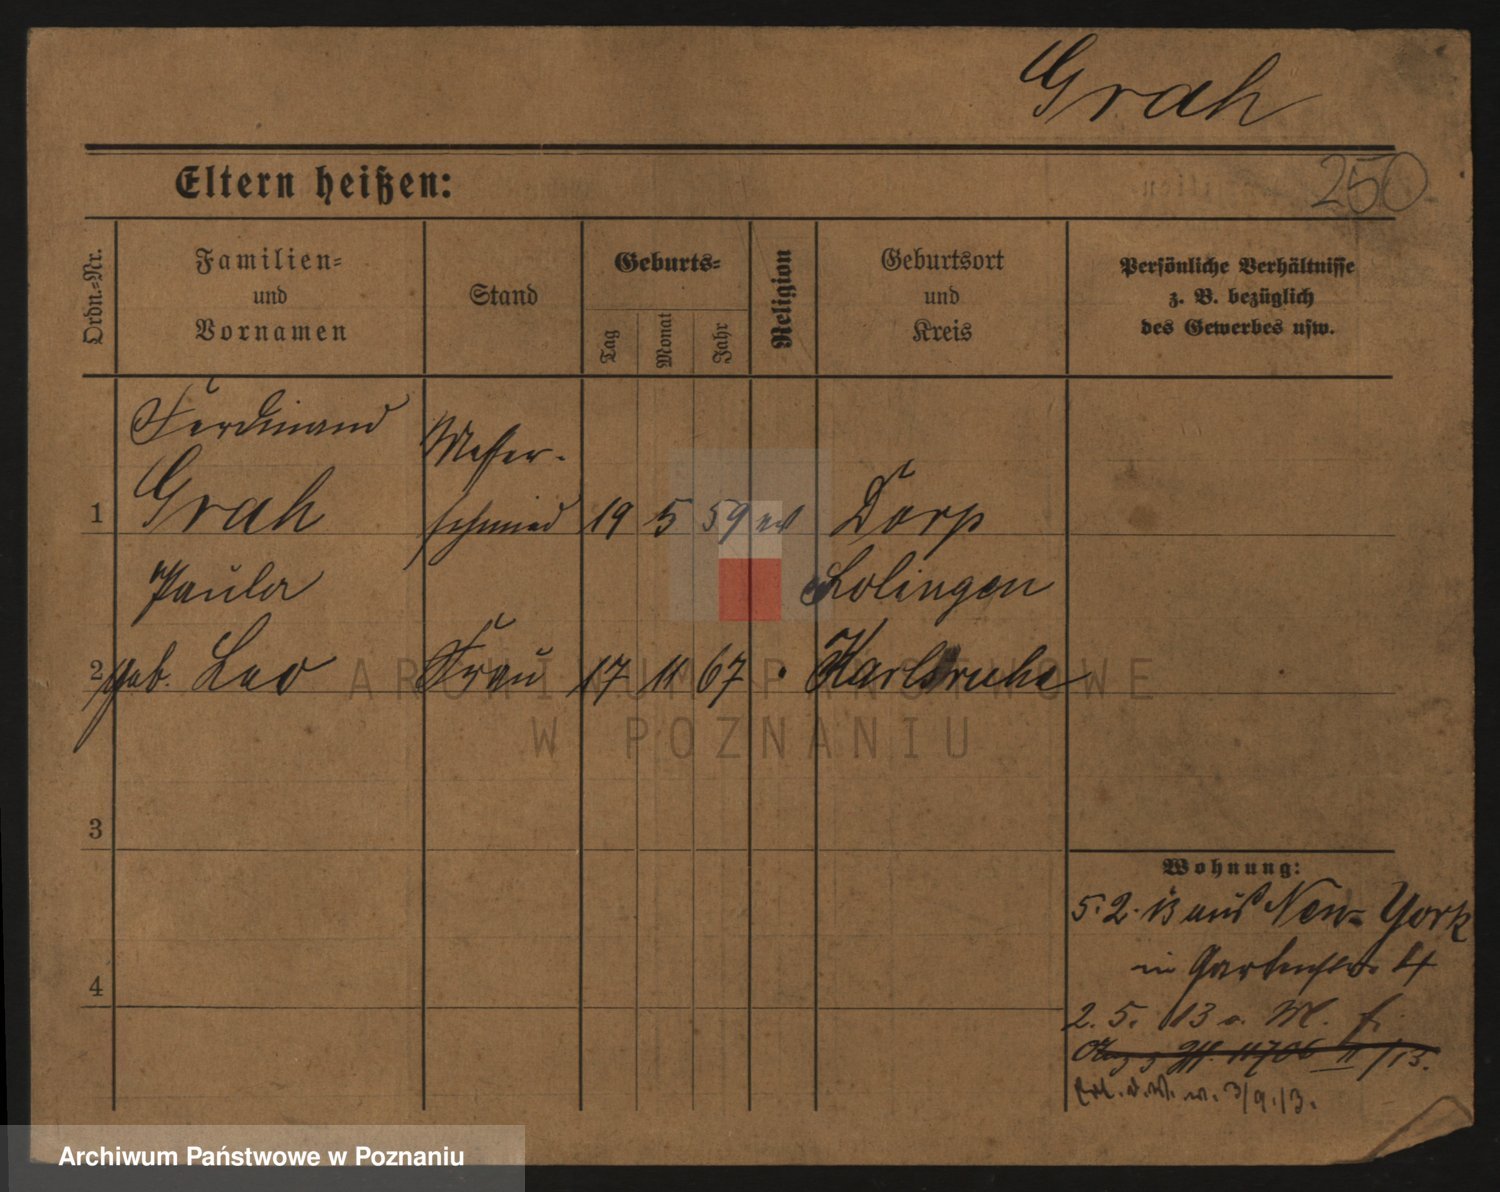 Grah
250
Eltern heißen:
Ordn.=Nr.
Familien=
und
Vornamen
Stand
Geburts=
Tag
Monat
Jahr
Religion
Geburtsort
und
Kreis
Persönliche Verhältnisse
z. B. bezüglich
des Gewerbes usw.
Ferdinand
Messer-
1 Grah schmied 19 5 59 ev Dorp
Paula Solingen
2 geb. Leo Frau 17 11 67 " Karlsruhe
3
4
Wohnung:
5. 2. 13 aus New-York
in Gartenstr.
2. 5. 13 a. M.
11706 II/13.
3/9.13.
ARCHIWUM PAŃSTWOWE
W POZNANIU
Archiwum Państwowe w Poznaniu